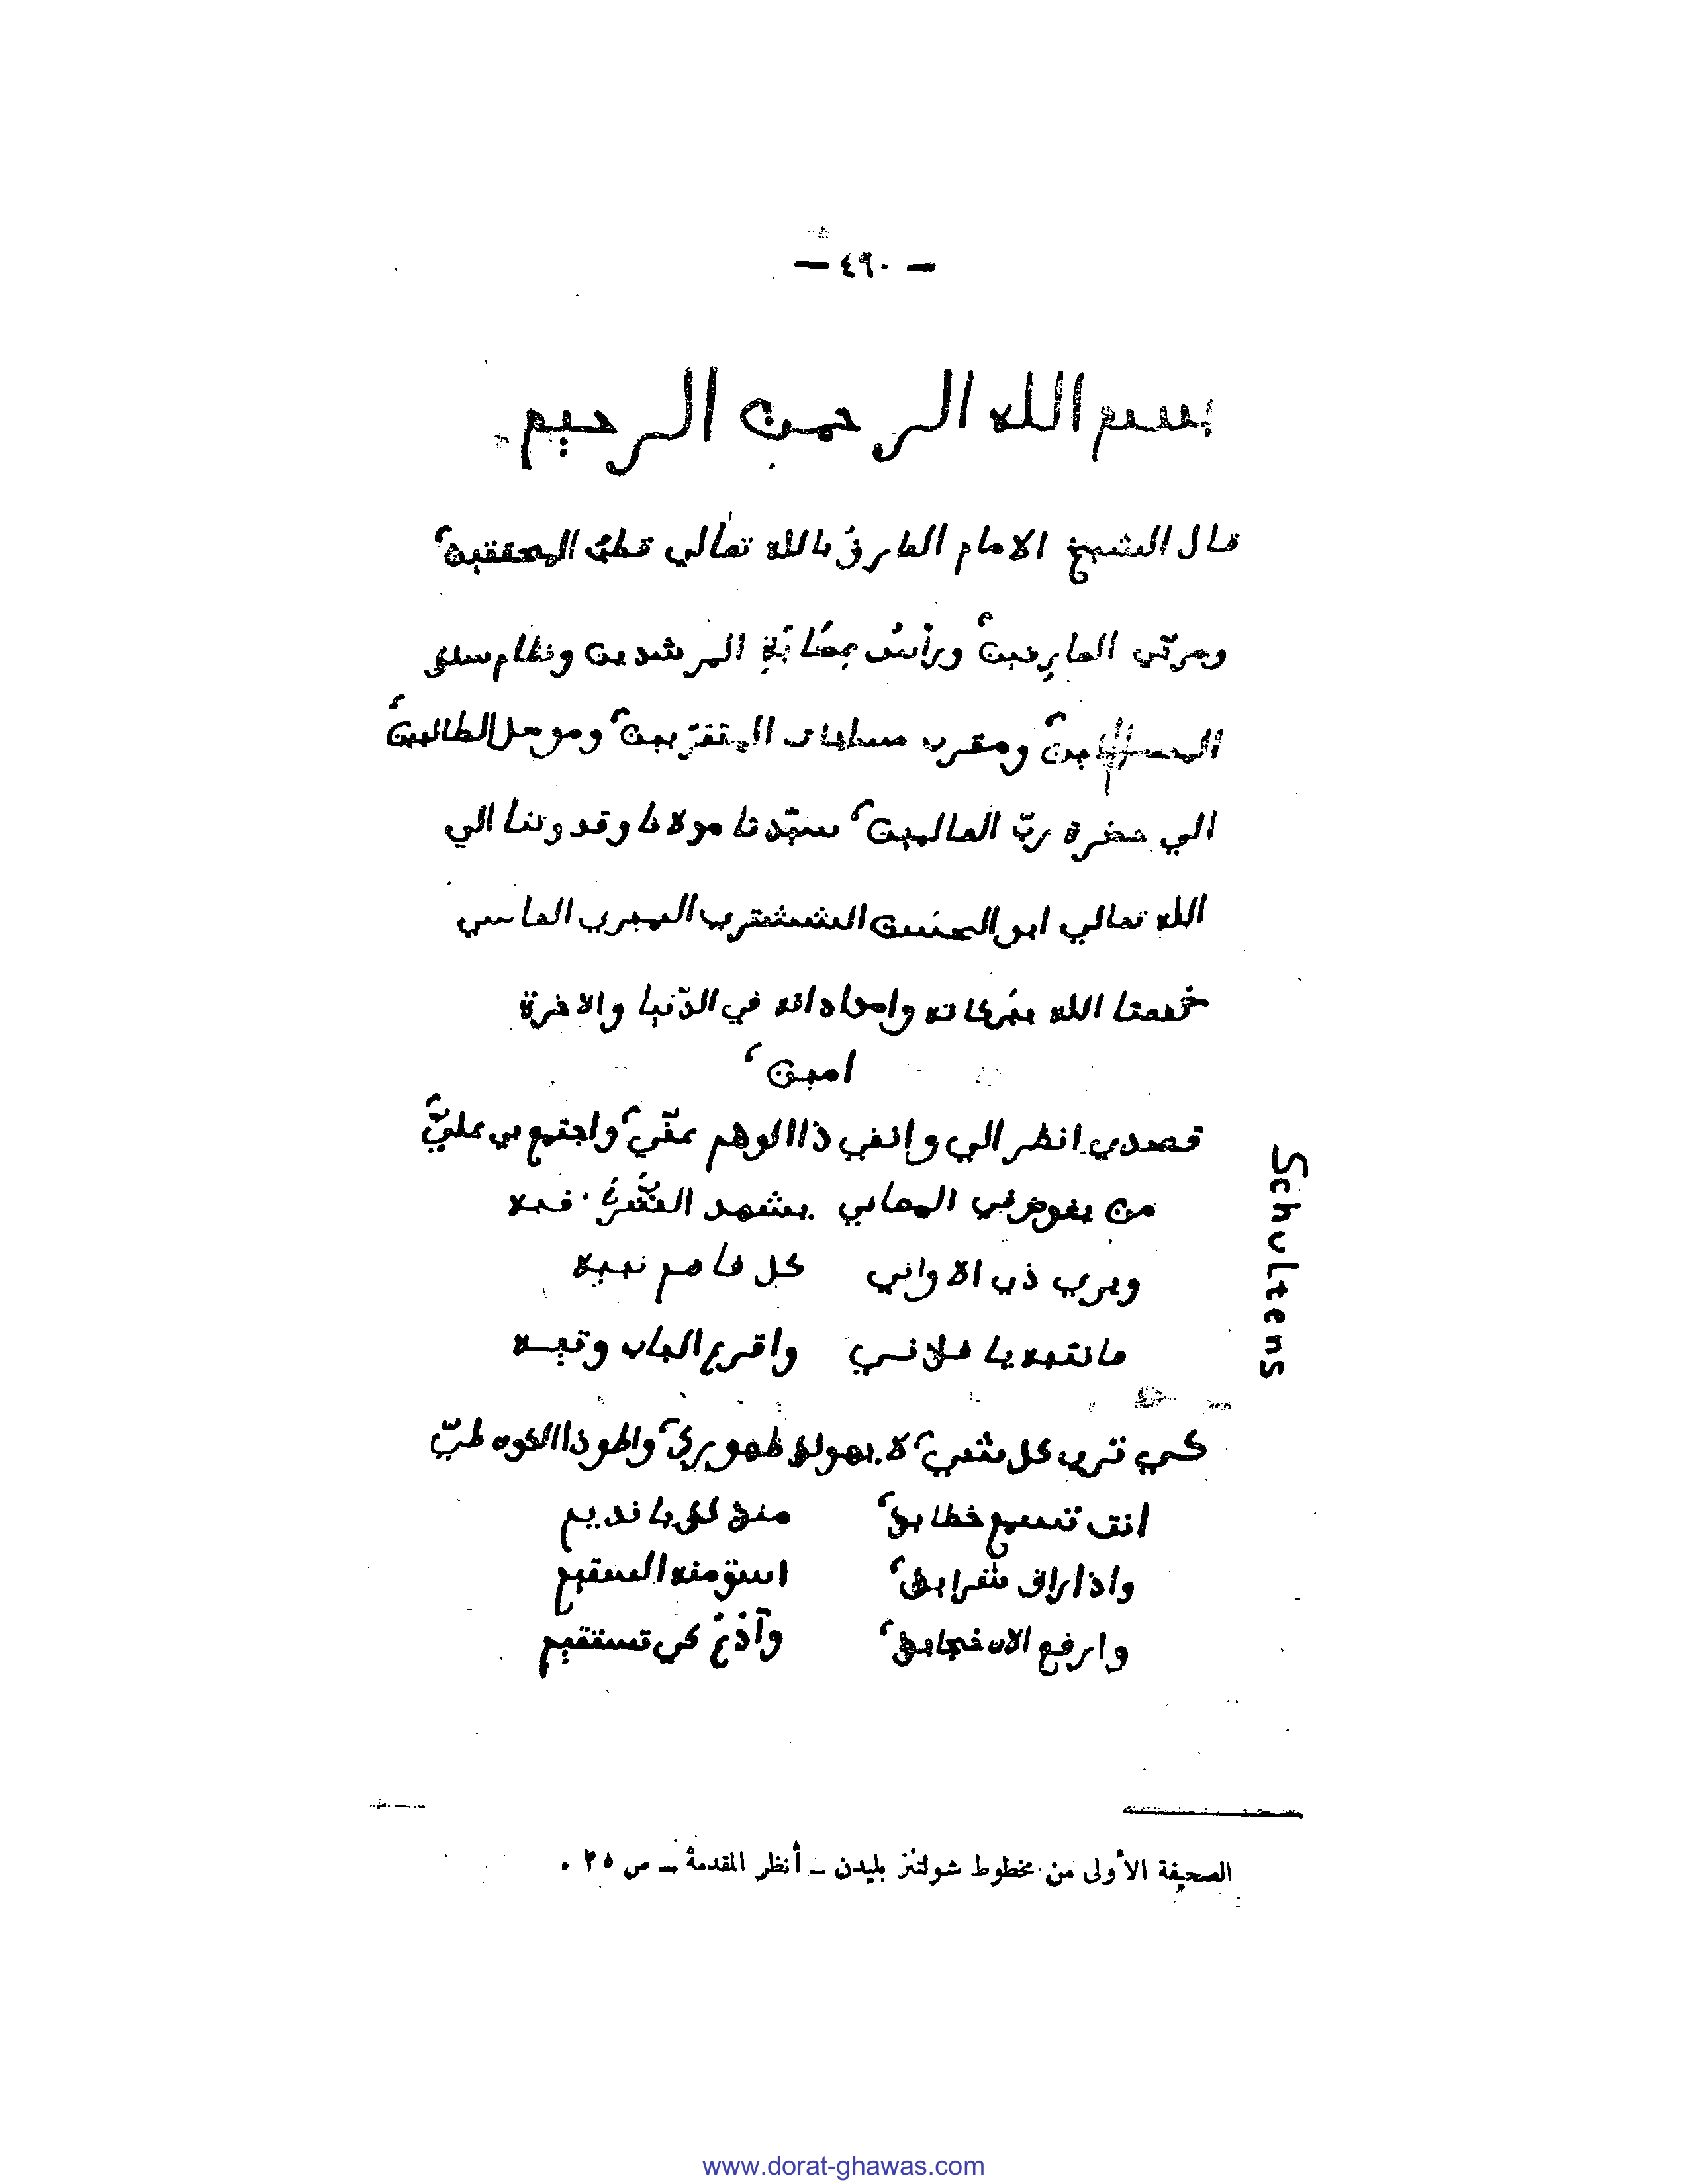 — ٤٩٠ —
بسم الله الرحمن الرحيم
قال الشيخ الامام العارف بالله تعالي قطب المحققين
ومربّي العارفين ورأس عصابة المرشدين ونظام سلك
ومقرب مسافات المتقرّبين وموصل الطالبين
الي حضرة ربّ العالمين سيّدنا مولانا وقدوتنا الي
الله تعالي ابو الحسن الششتري الفاسي
الله ببركاته وامداداته في الدّنيا والاخرة
امين
قصدي انظر الي وانفي ذا الوهم عنّي واجتمع بي عليّ
من يغوض في المعاني يشهد السّرّ فيه
ويري ذي الاواني كل فاهم نبيه
مانتبه يا فلاني واقرع الباب وتيه
كي تري كل شي لا يهولك ظهوري واطو ذا الكون طيّ
انت تسمع خطابك منك لك يا نديم
واذا راق شرابك اسق منه السقيم
وارفع الان حجابك كي تستقيم
Schultens
الصحيفة الأولى من مخطوط شولتنز بليدن ــ أنظر المقدمة ــ ص ٢٥ .
www.dorat-ghawas.com